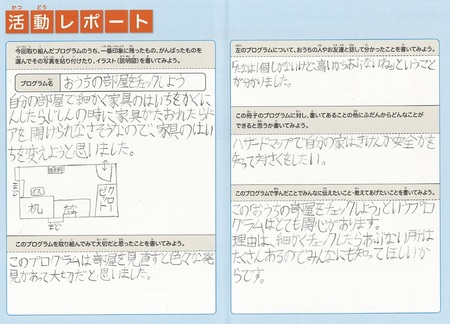 かつ どう
活動レポート
今回取り組んだプログラムのうち、一番印象に残ったもの、がんばったものを
選んでその写真を貼り付けたり、イラスト（説明図）を書いてみよう。
プログラム名 おうちの部屋をチェックしよう
自分の部屋を細かく家具のはいちをかくに
んしたらじしんの時に家具がたおれたらド
アを開けられなさそうなので、家具のはい
ちを変えようと思いました。
イス
机
まど
このプログラムを取り組んでみて大切だと思ったことを書いてみよう。
このプログラムは部屋を見直すと色々な発
見があって大切だと思いました。
左のプログラムについて、おうちの人やお友達と話して分かったことを書いてみよう。
「たなは1個しかないけど、高いからあぶないね。」ということ
が分かりました。
この冊子のプログラムに対し、書いてあることの他にふだんからどんなことが
できると思うか書いてみよう。
ハザードマップで自分の家はきけんか安全かを
知っておきたい。
このプログラムで学んだことでみんなに伝えたいこと・教えてあげたいことを書いてみよう。
この「おうちの部屋をチェックしよう」というプロ
グラムはとても関心があります。
理由は、細かくチェックしたらあぶない所は
たくさんあるのでみんなにも知ってほしいか
らです。